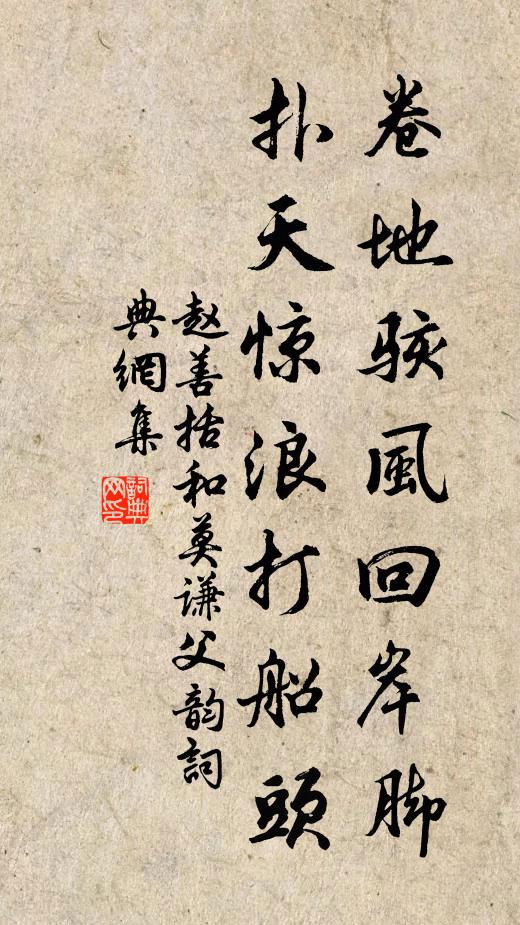 卷地骇風回岸脚
扑天惊浪打船頭
赵善括和莫谦父韵詞
典網集
詞典
网印